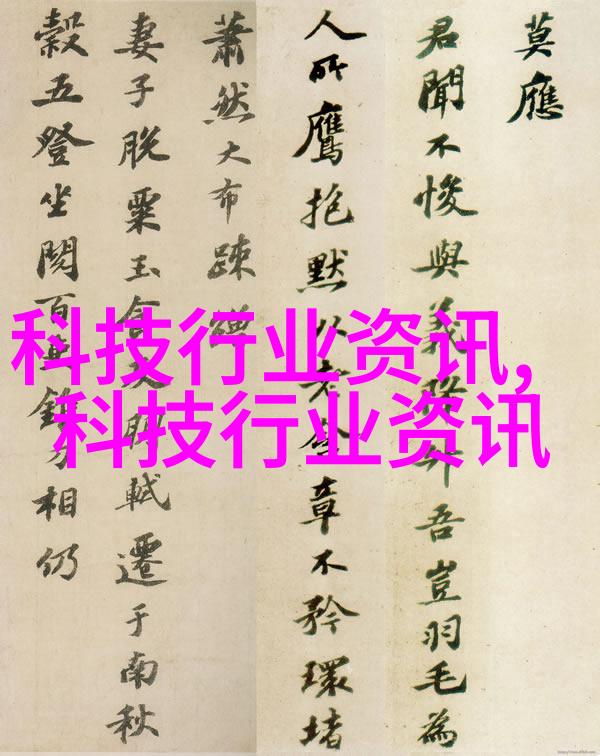 莫應
君聞不悛與義吾豈羽毛為
人所鷹抱默以老含章不矜環堵
蕭然大布疎
妻子脫粟玉食大軾遷于南秋
穀五登坐閱百相仍
科技行业资讯,
科技行业资讯